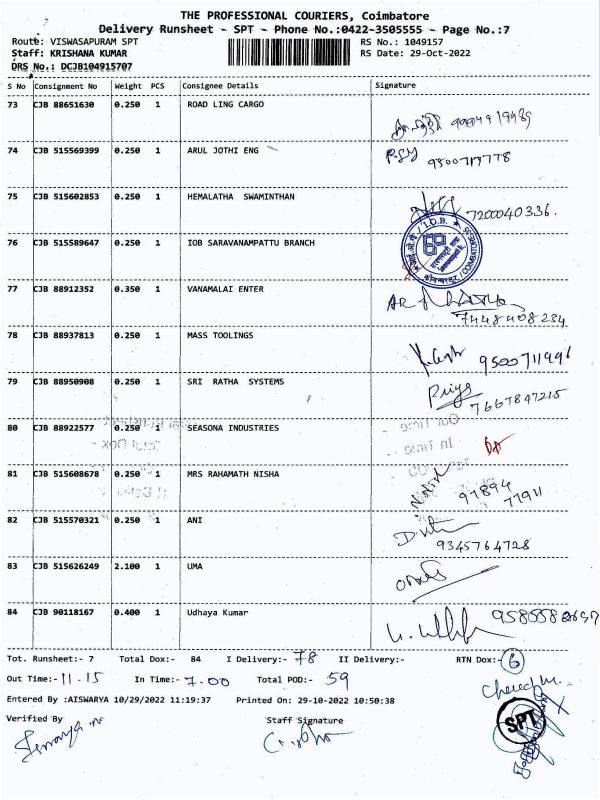 THE PROFESSIONAL COURIERS, Coimbatore
Delivery Runsheet - SPT - Phone No.:0422-3505555 - Page No.:7
Route: VISWASAPURAM SPT RS No.: 1049157
Staff: KRISHANA KUMAR RS Date: 29-Oct-2022
DRS No.: DCJB104915707
S No Consignment No Weight PCS Consignee Details Signature
73 CJB 88651630 0.250 1 ROAD LING CARGO
74 CJB 515569399 0.250 1 ARUL JOTHI ENG
75 CJB 515602853 0.250 1 HEMALATHA SWAMINTHAN 7200040336.
76 CJB 515589647 0.250 1 IOB SARAVANAMPATTU BRANCH
I.O.B. COIMBATORE-35
77 CJB 88912352 0.350 1 VANAMALAI ENTER
7448408234
78 CJB 88937813 0.250 1 MASS TOOLINGS 9500711996
79 CJB 88950908 0.250 1 SRI RATHA SYSTEMS Priya
7667847215
80 CJB 88922577 0.250 1 SEASONA INDUSTRIES
81 CJB 515608678 0.250 1 MRS RAHAMATH NISHA 97894
77911
82 CJB 515570321 0.250 1 ANI
9345764728
83 CJB 515626249 2.100 1 UMA
84 CJB 90118167 0.400 1 Udhaya Kumar
Tot. Runsheet:- 7 Total Dox:- 84 I Delivery:- 78 II Delivery:- RTN Dox:- 6
Out Time:- 11-15 In Time:- 7.00 Total POD:- 59
Entered By :AISWARYA 10/29/2022 11:19:37 Printed On: 29-10-2022 10:50:38
Verified By Staff Signature
SPT